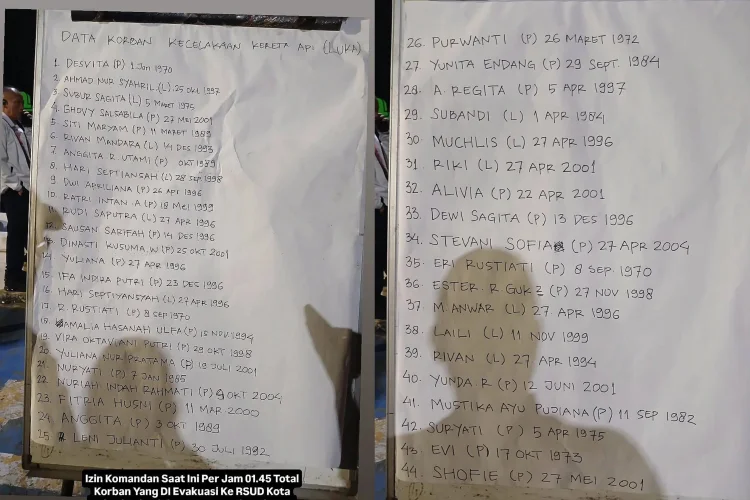 DATA KORBAN KECELAKAAN KERETA API (LUKA)
1. DESVITA (P) 1 JUN 1970
2. AHMAD NUR SYAHRIL (L) 25 OKT 1997
3. SUBUR SAGITA (L) 5 MARET 1975
4. GHDVY SALSABILA (P) 27 MEI 2001
5. SITI MARYAM (P) 11 MARET 1989
6. RIVAN MANDARA (L) 14 DES 1993
7. ANGGITA R UTAMI (P) OKT 1989
8. HARI SEPTIANSAH (L) 28 SEP 1998
9. DWI APRILIANA (P) 26 APR 1996
10. RATRI INTAN A (P) 18 MEI 1999
11. RUDI SAPUTRA (L) 27 APR 1996
12. SAUSAN SARIFAH (P) 14 DES 1996
13. DINASTI KUSUMA W (P) 25 OKT 2001
14. YULIANA (P) 27 APR 1996
15. IFA INDIRA PUTRI (P) 23 DES 1996
16. HARI SEPTIYANSYAH (L) 27 APR 1996
17. R. RUSTIATI (P) 8 SEP 1970
18. AMALIA HASANAH ULFA (P) 15 NOV 1994
19. VIRA OKTAVIANI PUTRI (P) 29 OKT 1998
20. YULIANA NUR PRATAMA (P) 19 JULI 2001
21. NURYATI (P) 7 JAN 1985
22. NURIAH INDAH RAHMATI (P) 9 OKT 2004
23. FITRIA HUSNI (P) 11 MAR 2000
24. ANGGITA (P) 3 OKT 1989
25 LENI JULIANTI (P) 30 JULI 1992
Izin Komandan Saat Ini Per Jam 01.45 Total
Korban Yang DI Evakuasi Ke RSUD Kota
26. PURWANTI (P) 26 MARET 1972
27. YUNITA ENDANG (P) 29 SEPT. 1984
28. A. REGITA (P) 5 APR 1997
29. SUBANDI (L) 1 APR 1984
30. MUCHLIS (L) 27 APR 1996
31. RIKI (L) 27 APR 2001
32. ALIVIA (P) 22 APR 2001
33. DEWI SAGITA (P) 13 DES 1996
34. STEVANI SOFIA (P) 27 APR 2004
35. ERI RUSTIATI (P) 8 SEP. 1970
36. ESTER R GUKZ (P) 27 NOV 1998
37. M ANWAR (L) 27 APR 1996
38. LAILI (L) 11 NOV 1999
39. RIVAN (L) 27 APR 1994
40. YUNDA R (P) 12 JUNI 2001
41. MUSTIKA AYU PUDIANA (P) 11 SEP 1982
42. SURYATI (P) 5 APR 1975
43. EVI (P) 17 OKT 1973
44. SHOFIE (P) 27 MEI 2001